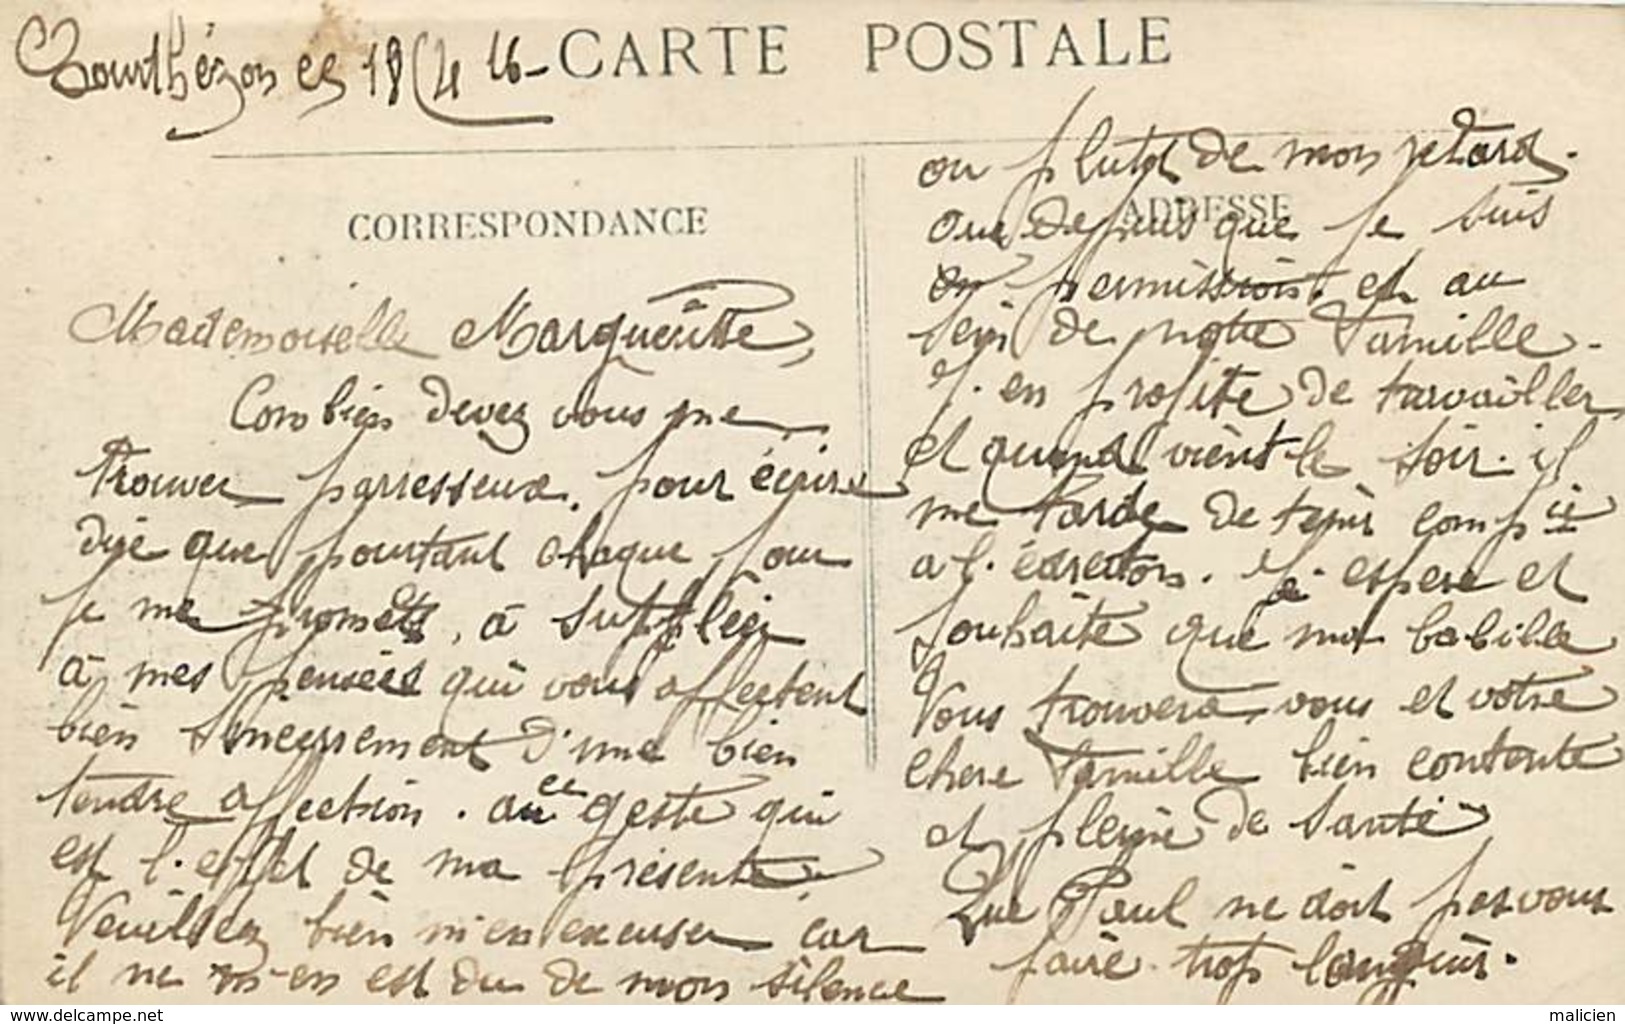 Courthézon ce 18/4 16-
CARTE POSTALE
CORRESPONDANCE
Mademoiselle Marguerite,
Combien devez vous me
trouver parresseux. pour écrire
que pourtant chaque jour
je me promets, à suppléer
à mes pensées qui vous affectent
bien sincerrement d'une bien
tendre affection. ce geste qui
est l'effet de ma présente.
Veuillez bien m'en excuser car
il ne m'en est du de mon silence
ADRESSE
ou plutot de mon retard.
depuis que je suis
en permission. et au
sein de notre famille.
J'en profite de travailler
et quand vient le soir. il
me tarde de tenir compie
a l'. J'espere et
souhaite que ma babille
Vous trouvera vous et votre
chere famille bien contente
et pleine de santé
Que Paul ne doit pas vous
faire trop languir.
www.delcampe.net
malicien